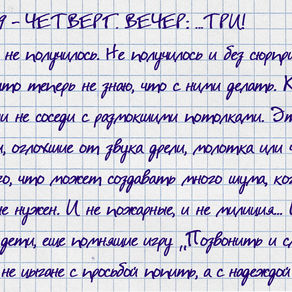 9 - ЧЕТВЕРГ. ВЕЧЕР: ...ТРИ!
не получилось. Не получилось и без сюрпри
что теперь не знаю, что с ними делать. К
и не соседи с размокшими потолками. Эт
и, оглохшие от звука дрели, молотка или ч
го, что может создавать много шума, ко
не нужен. И не пожарные, и не милиция...
дети, еще помнящие игру „Позвонить и с
не цыгане с просьбой попить, а с надеждой